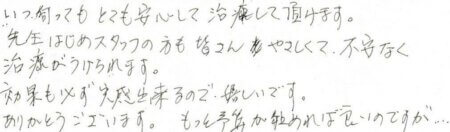 いつ伺っても とても安心して 治療して頂けます。
先生はじめスタッフの方も 皆さん やさしくて、不安なく
治療がうけられます。
効果も必ず実感出来るので 嬉しいです。
ありがとうございます。 もっと予算が組めれば良いのですが…